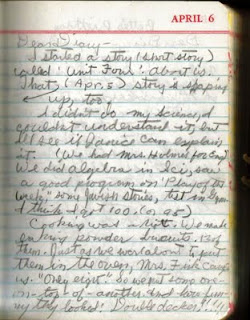 APRIL 6
Dear Diary—
I started a story (short story)
called "Unit Four". About us.
That (Apr. 5) story is shaping
up, too.
I didn't do my Science, I
couldn't understand it, but
I'll see if Janice can explain
it. (We had Mrs. Holmes for Eng.)
We did algebra in Sci., saw
a good program on "Play of the
Week," some Jewish stories, test in
I think I got 100. (or 95)
Cooking was a riot. We made
baking powder biscuits. 13 of
them. Just as we were about to put
them in the oven, Mrs. Fisk came
in. "Only eight." So we put some one-
on-top-of-another. And how fun-
ny they looked! Double decker!